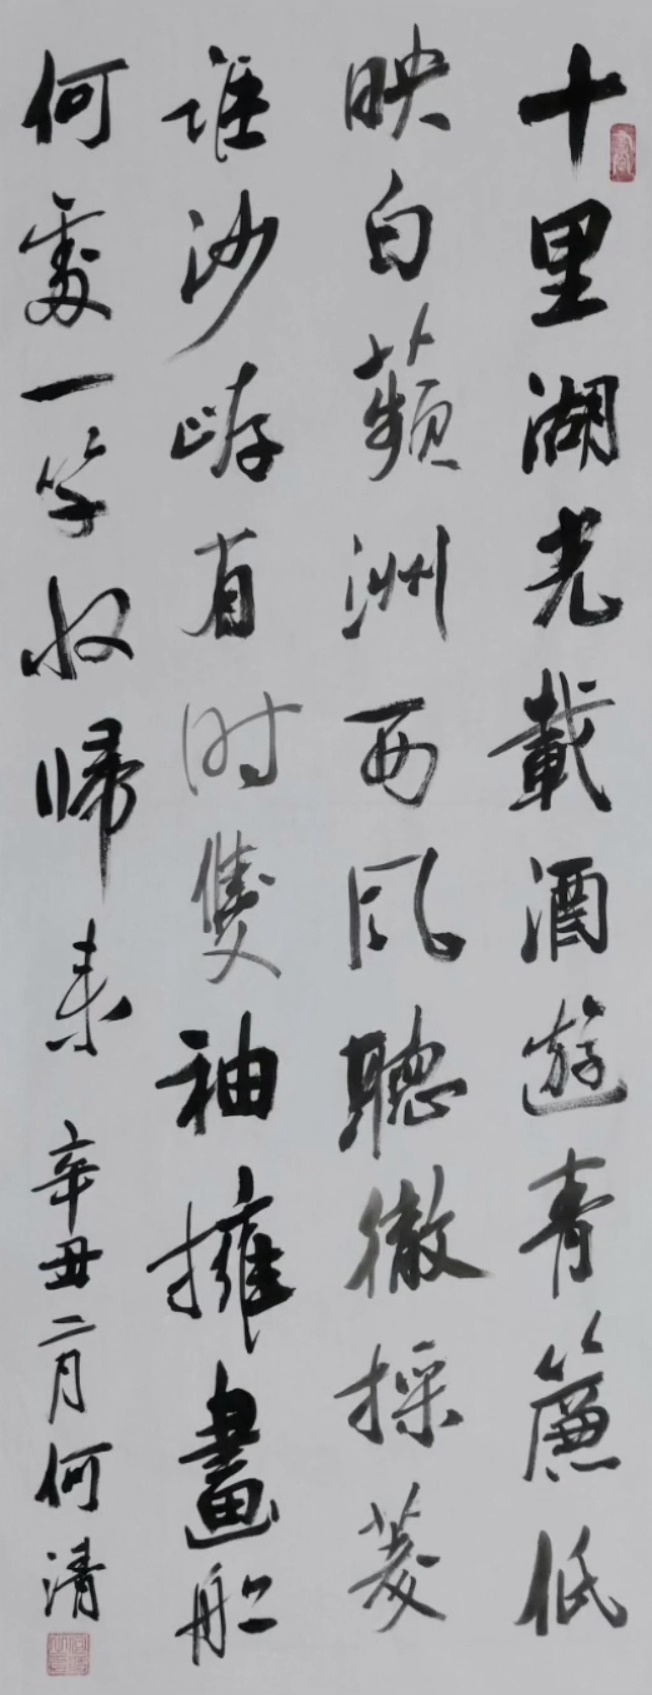 十里湖光載酒遊青簾低
映白蘋洲西风聽徹採菱
謳沙岸有时雙袖擁畫船
何處一竿收歸来
辛丑二月何清